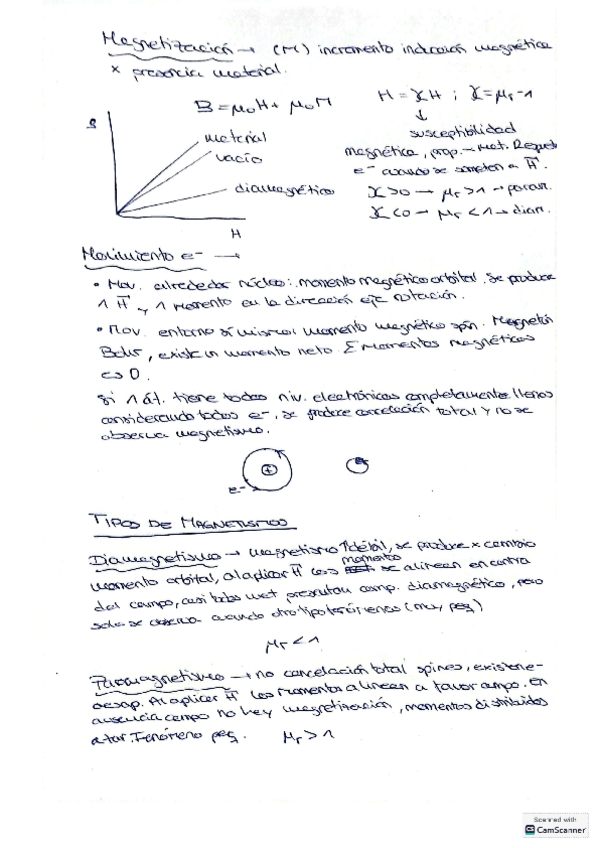 Magnetización → (M) incremento inducción magnética
x presencia material.
B = μ₀H + μ₀M
M = χH ; χ = μr - 1
↓
susceptibilidad
magnética, prop. → Mat. Respuet
e⁻ cuando se someten a H⃗.
χ>0 → μr>1 → param.
χ<0 → μr<1 → diam.
B
material
vacío
diamagnético
H
Movimiento e⁻ →
• Mov. alrededor núcleo: momento magnético orbital. Se produce
1 H⃗ y 1 momento en la dirección eje rotación.
• Mov. entorno sí mismo: momento magnético spin. Magnetón
Bohr, existe un momento neto. Σ momentos magnéticos
<> 0.
Si 1 át. tiene todos niv. electrónicos completamente llenos
considerando todos e⁻, se produce cancelación total y no se
observa magnetismo.
+
e⁻
TIPOS DE MAGNETISMO
Diamagnetismo → magnetismo débil, se produce x cambio
momento orbital, al aplicar H⃗ los momentos se alinean en contra
del campo, casi todos mat presentan comp. diamagnético, pero
solo se observa cuando otro tipo fenómenos (muy peq)
μr < 1
Paramagnetismo → no cancelación total spines, existen e⁻
desap. Al aplicar H⃗ los momentos alinean a favor campo. En
ausencia campo no hay magnetización, momentos distribuidos
azar. Fenómeno peq. μr > 1
Scanned with
CamScanner